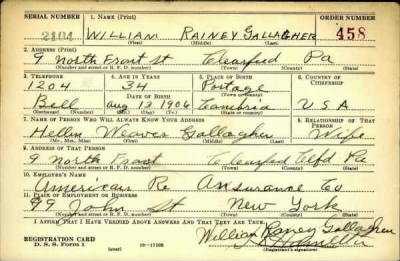 SERIAL NUMBER 1. NAME (Print) ORDER NUMBER
WILLIAN RAINEY GALLAGHER 458
(First) (Middle) (Last)
2. ADDRESS (Print)
9 North Front St Clearfied Pa
(Number and street or R. F. D. number) (Town) (County) (State)
3. TELEPHONE 4. AGE IN YEARS 5. PLACE OF BIRTH 6. COUNTRY OF CITIZENSHIP
1204 34 Portage
DATE OF BIRTH (Town or county)
Bell Aug 13 1906 Cambria U S A
(Exchange) (Number) (Mo.) (Day) (Yr.) (State or country)
7. NAME OF PERSON WHO WILL ALWAYS KNOW YOUR ADDRESS 8. RELATIONSHIP OF THAT PERSON
Hellen Weaver Gallagher Wife
(Mr., Mrs., Miss) (First) (Middle) (Last)
9. ADDRESS OF THAT PERSON
9 North Front Clearfied Clfd Pa
(Number and street or R. F. D. number) (Town) (County) (State)
10. EMPLOYER'S NAME
American Re Insurance Co
11. PLACE OF EMPLOYMENT OR BUSINESS
99 John St New York
(Number and street or R. F. D. number) (Town) (County) (State)
I AFFIRM THAT I HAVE VERIFIED ABOVE ANSWERS AND THAT THEY ARE TRUE.
William Rainey Gallagher
REGISTRATION CARD
D. S. S. Form 1 16—17105 (Registrant's signature)